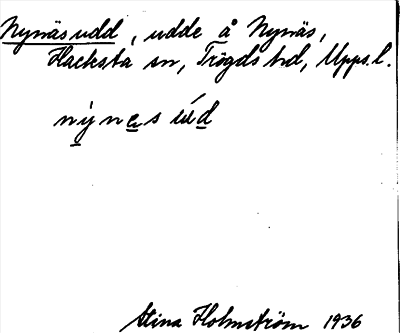 Nynäsudd, udde å Nynäs,
Hacksta sn, Trögds hd, Upps. l.
nynes úd
Stina Holmström 1936